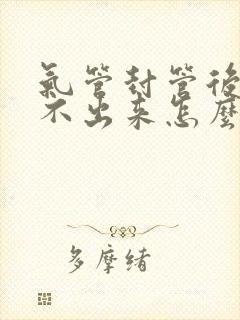 氣管封管後
不出来怎麼
多摩緒